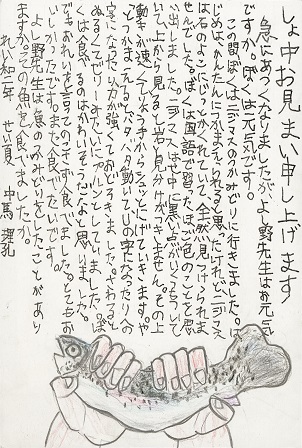 しょ中お見まい申し上げます
急にあつくなりましたがよし野先生はお元気
ですか。ぼくは元気です。
この間ぼくはニジマスのつかみどりに行きました。は
じめは、かんたんにつかまえられると思ったけれどニジマス
は石のよこにじっとかくれていて、全然見つけられま
せんでした。ぼくは国語で習った、ほご色のことを思
い出しました。ニジマスはせ中に黒い点がいくつもついて
いて、上から見ると岩と見分けがつきません。その上
動きが速くて
つかまえるとバタバタ動いてUの字になったりへの
字になったり力が強くておどろきました。さわると
ぬるぬるしてゼリーみたいにプルンとしていました。ぼ
くは食べるのはかわいそうだなと思いました。
でもおれいを言ってのこさず食べました。とてもお
いしかったです。また食べたいです。
よし野先生は魚のつかみどりをしたことがあり
ますか。その魚を食べましたか。
れい和二年 せい夏 中馬